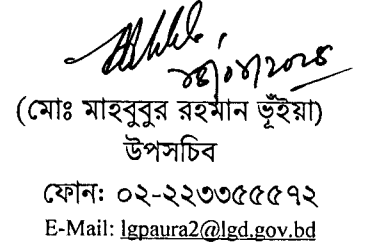 (মোঃ মাহবুবুর রহমান ভূঁইয়া)
উপসচিব
ফোন: ০২-২২৩৩৫৫৫৭২
E-Mail: lgpaura2@lgd.gov.bd